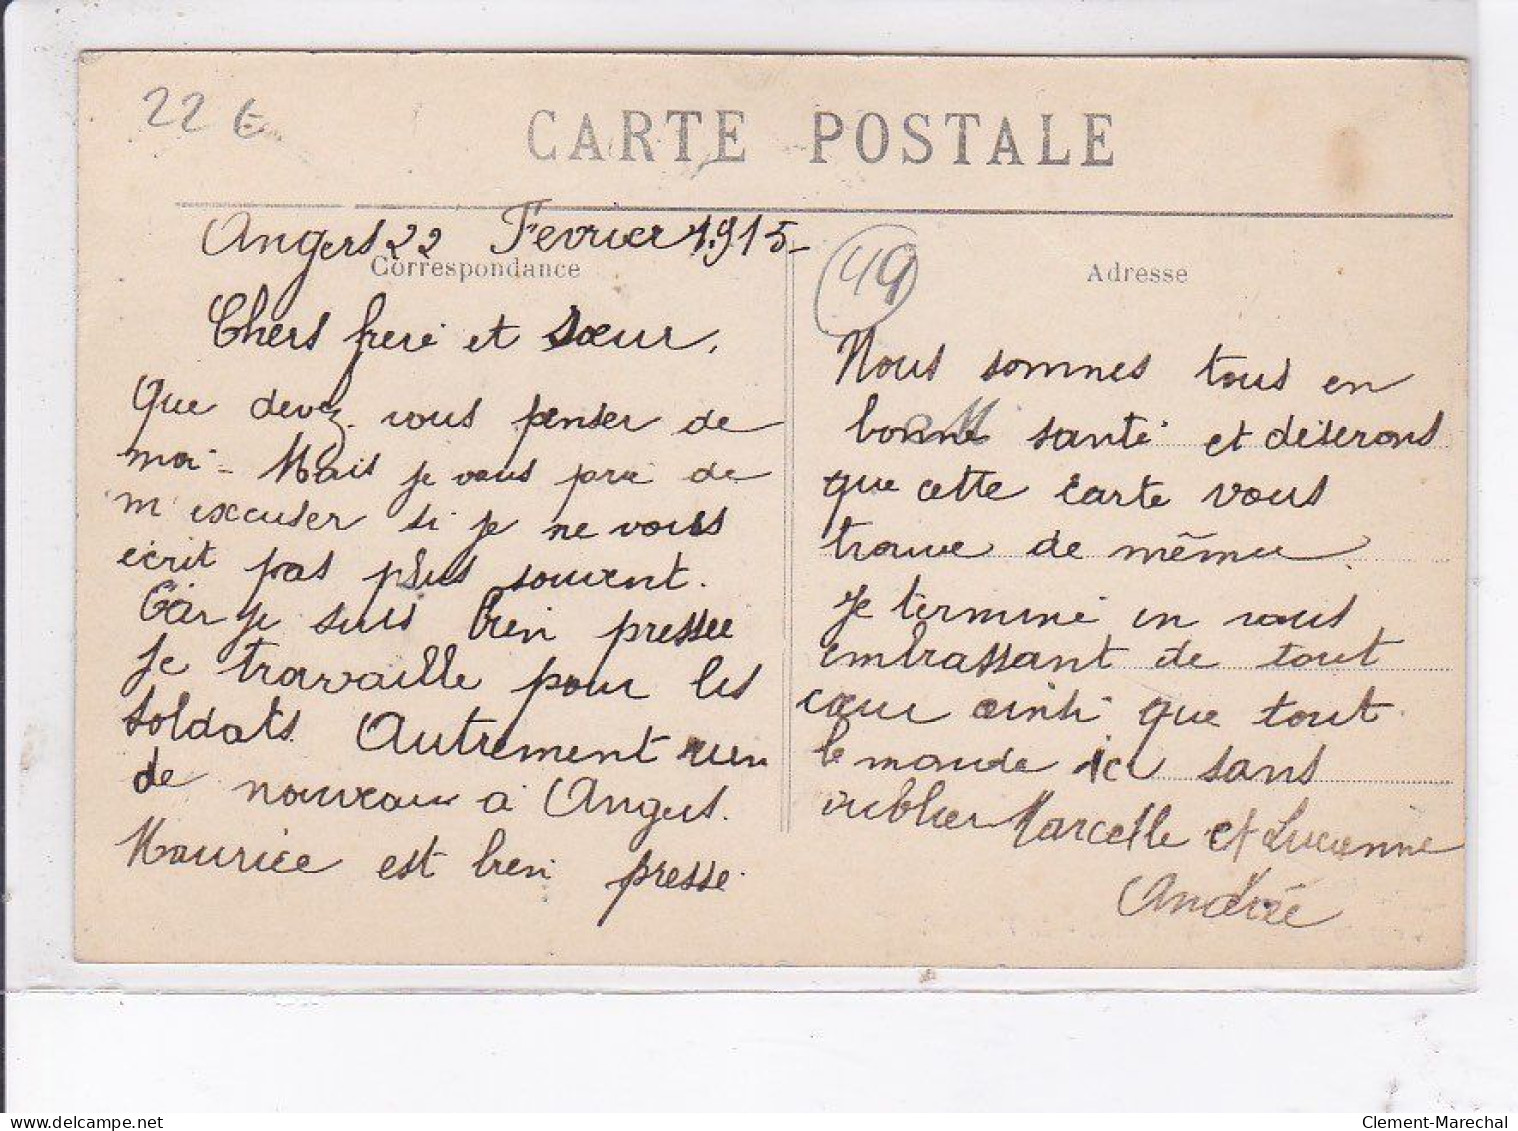 22 €
CARTE POSTALE
Angers 22 Fevrier 1915
Correspondance
Chers frere et sœur,
Que devez vous penser de
moi - Mais je vous prie de
m'excuser si je ne vous
écrit pas plus souvent.
Car je suis bien pressée
je travaille pour les
soldats. Autrement rien
de nouveau à Angers.
Maurice est bien presse.
49
Adresse
Nous sommes tous en
bonne santé et déserons
que cette carte vous
trouve de même.
Je termine en vous
embrassant de tout
cœur ainsi que tout
le monde ici sans
oublier Marcelle et Lucienne
Andrée
delcampe.net
Clement-Marechal